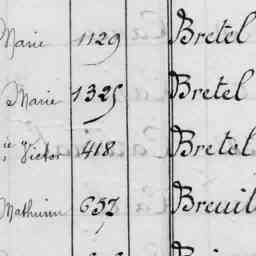 Marie 1129 Bretel
Marie 1325 Bretel
Victor 418 Bretel
Mathurin 652 Breuil